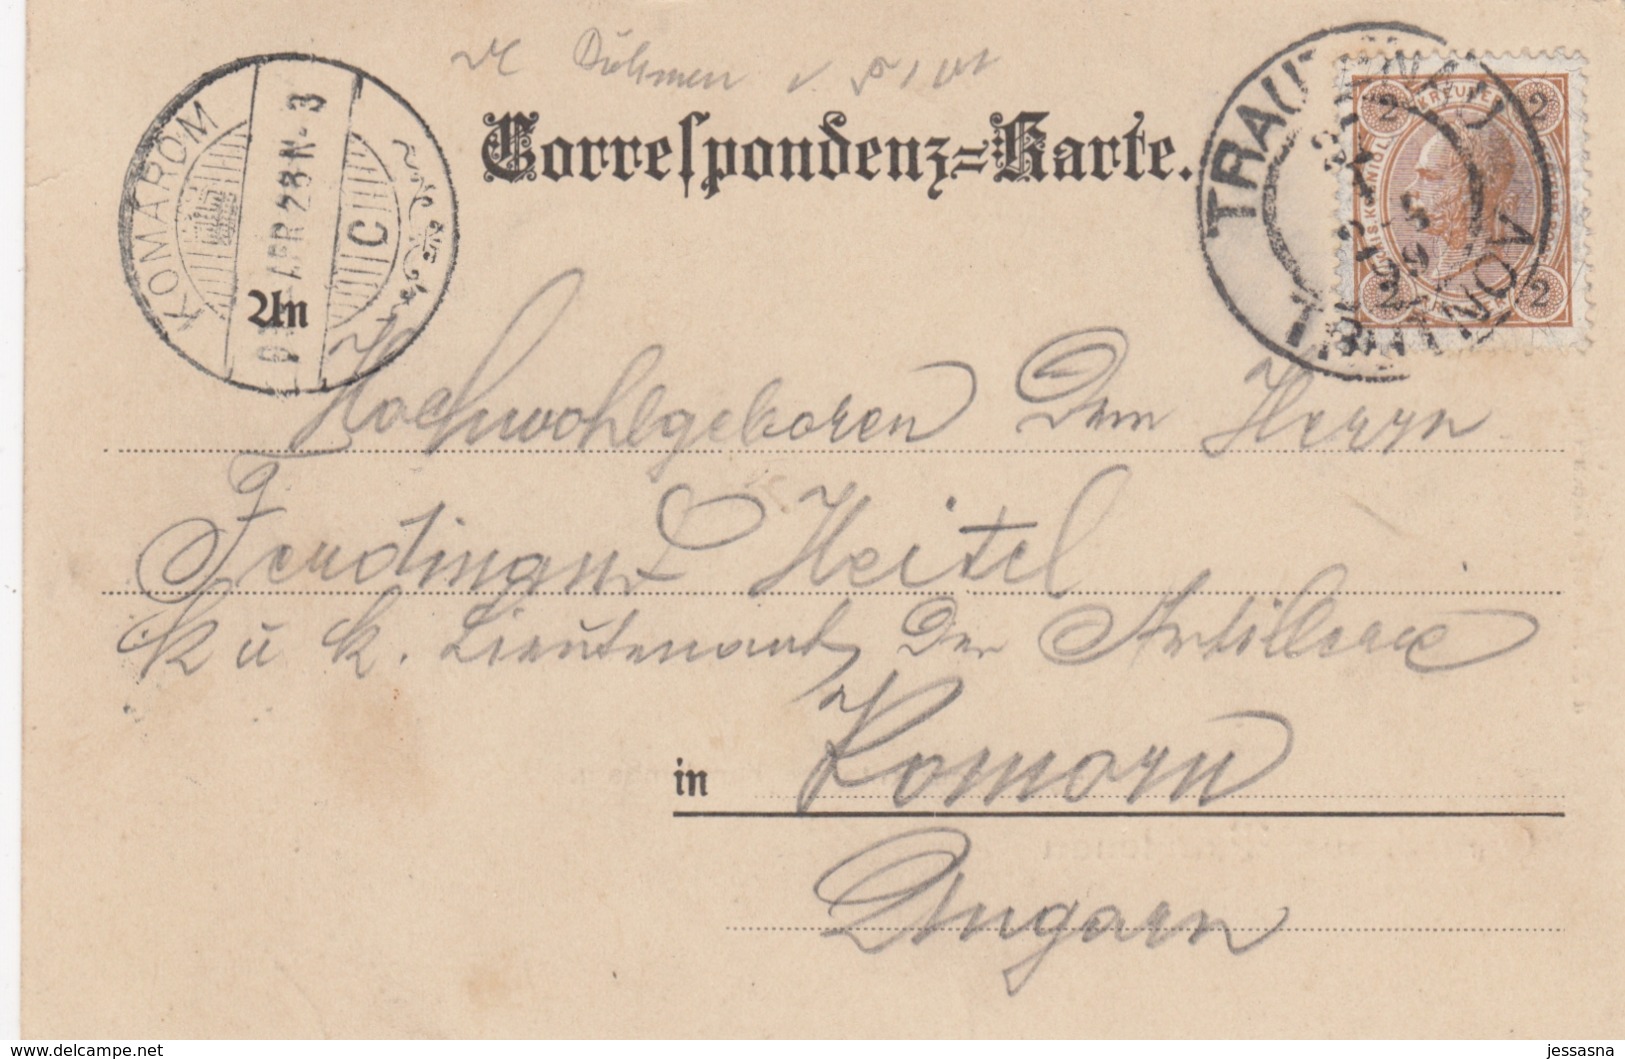 Böhmen
Correspondenz=Karte.
KOMÁROM
APR 28 N- 3
C
TRAUTENAU
TRUTNOV
2 KREUZER 2
2 2
An
Hochwohlgeboren Dem Herrn
Ferdinand Heitel
K u k. Lieutenant Der Artillerie
in Komorn
Ungarn
www.delcampe.net
jessasna